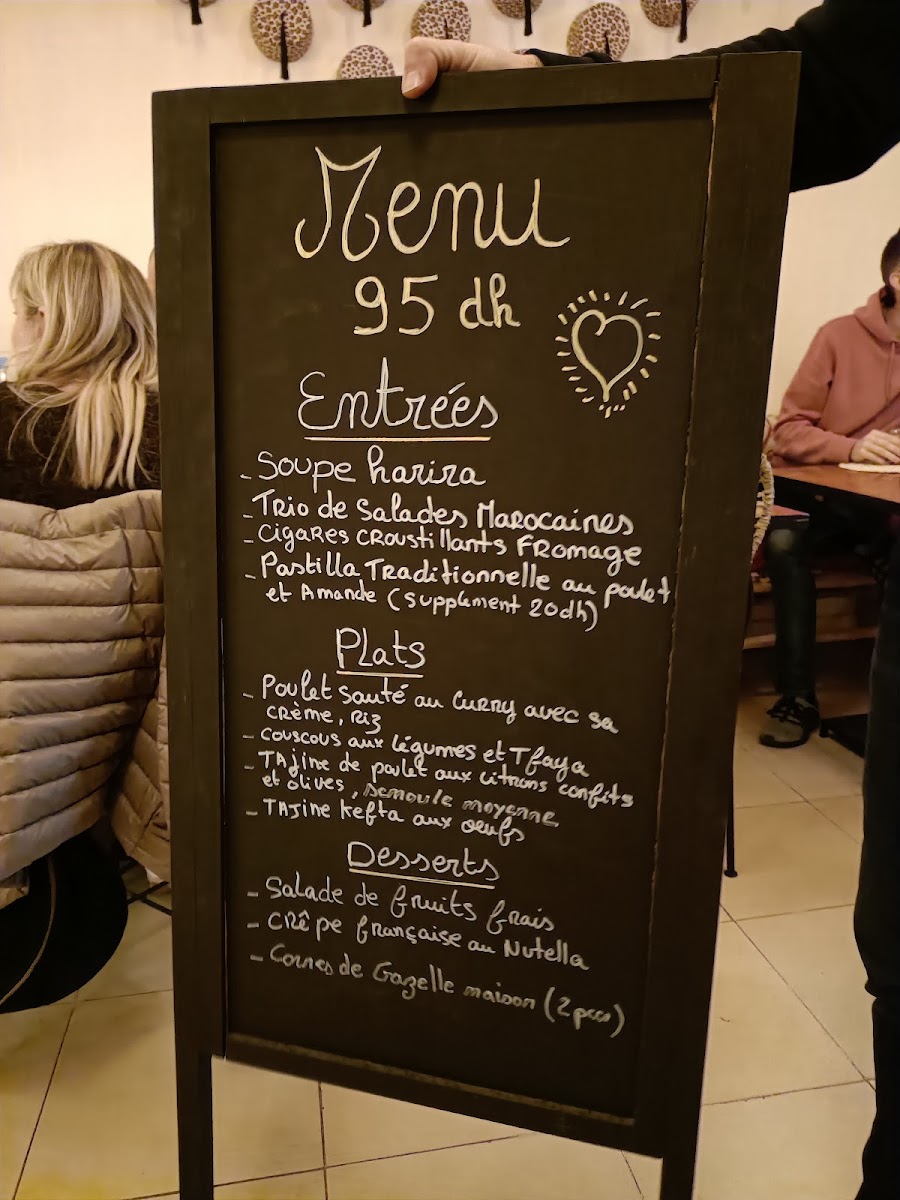 Menu
95 dh
Entrées
- Soupe harira
- Trio de Salades Marocaines
- Cigares croustillants Fromage
- Pastilla Traditionnelle au poulet
et Amande (supplement 20dh)
Plats
- Poulet sauté au curry avec sa
crème, Riz
- couscous aux légumes et Tfaya
- Tajine de poulet aux citrons confits
et olives, semoule moyenne
- Tajine Kefta aux oeufs
Desserts
- Salade de fruits frais
- Crêpe française au Nutella
- Cornes de Gazelle maison (2 pces)